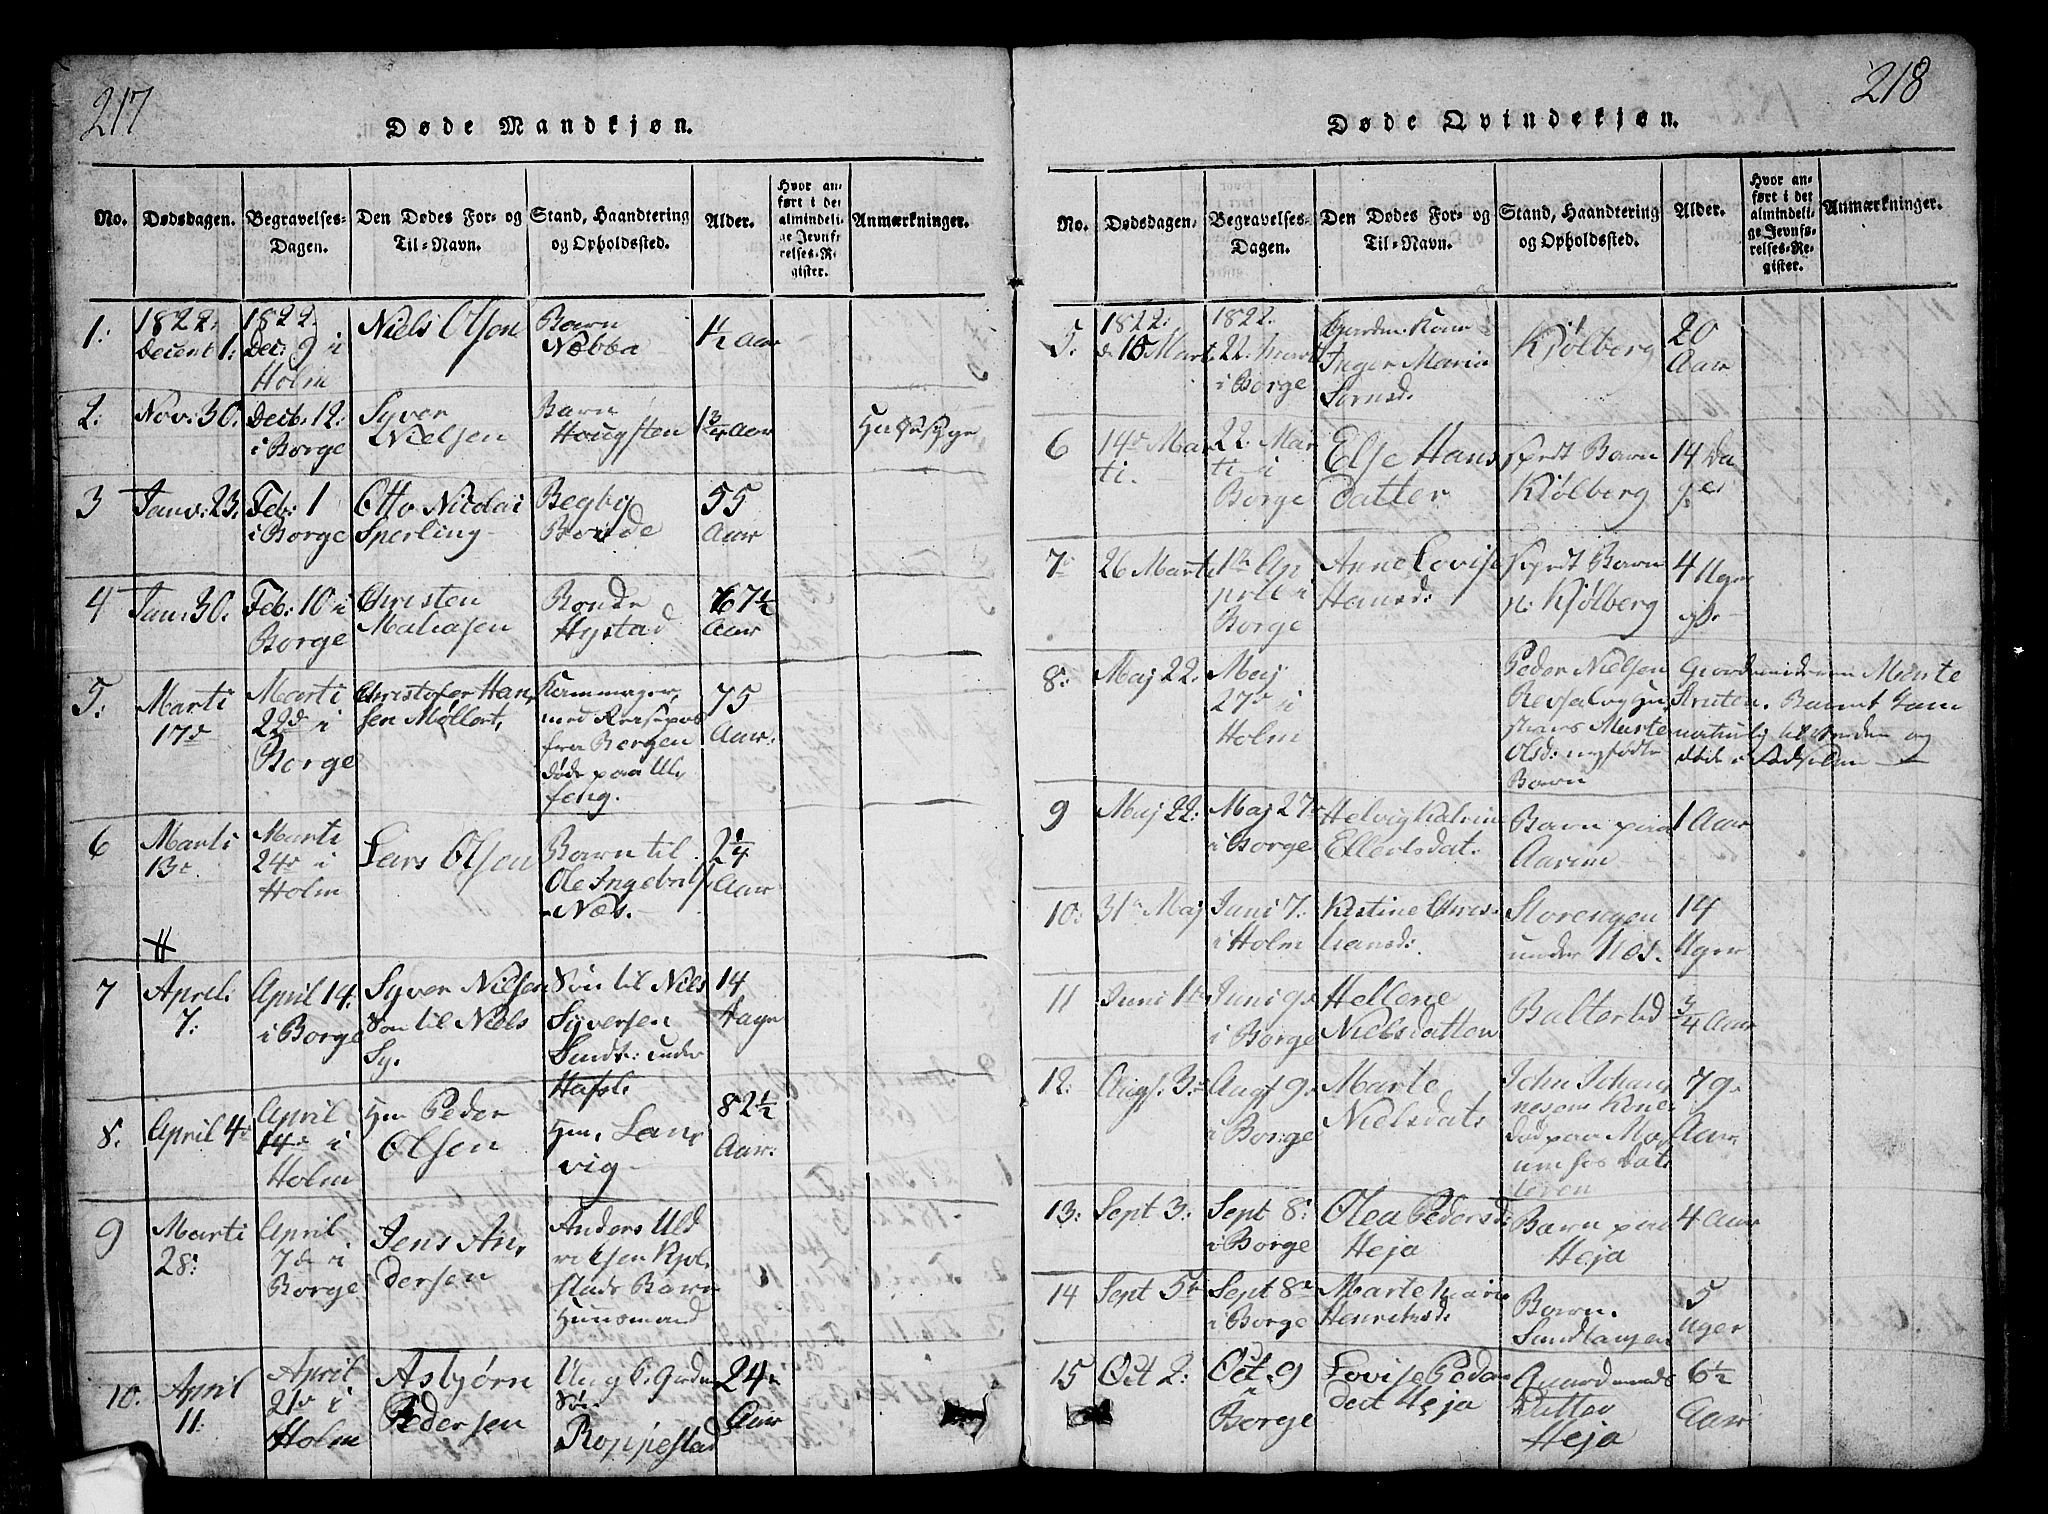 217
Døde Mandkjøn.
No. Dødsdagen. Begravelses-Dagen. Den Dødes For- og Til-Navn. Stand, Haandtering og Opholdssted. Alder. Hvor anført i det almindelige Jevnførelses-Register. Anmærkninger.
1: 1822. Decem 1: 1822. Dec: 9 i Holm Niels Olsen Barn Næbba 1½ Aar
2: Nov: 30. Decb. 12: i Borge Syver Nielsen Barn Hougsten 1¾ Aar
3 Janv: 23. Feb: 1 i Borge Otto Nicolai Sperling Begby Bonde 55 Aar
4 Jan: 30. Feb: 10 i Borge Christen Mahiasen Bonde Hystad 67½ Aar
5: Marti 17de Marti 22de i Borge Christofer Hansen Møllert, Kammager, med Reisepas fra Bergen døde paa Ul, feng. 75 Aar:
6 Marti 13de Marti 24de i Holm Lars Olsen Barn til Ole Ingebrits Næs. 2¼ Aar
7 Apreli 7: April 14: i Borge Syver Nilsen Søn til Niels Sy. Søn til Niels Syversen Sundt: under Hafsl: 14 Dage
8: April 4de April 14de i Holm Hm Peder Olsen Hm, Lanvig 82½ Aar:
9 Marti 28: April 7de i Borge Jens Andersen Anders Uldriksen Kjølstads Barn Huusmand
10. April 11: April 21de i Holm Asbjørn Pedersen Ung P. Gaardm Søn Roppestad 24 Aar
218
Døde Qvindekjøn.
No. Dødsdagen. Begravelses-Dagen. Den Dødes For- og Til-Navn. Stand, Haandtering og Opholdssted. Alder. Hvor anført i det almindelige Jevnførelses-Register. Anmærkninger.
5. 1822: d. 15 Mart. 1822. 22. Mart i Borge Gaardm. Kone Inger Maria Sørnsd. Kjølberg 20 Aar
6 14de Marti. 22. Marti i Borge Else Hansdatter Barn Kjølberg 14 Dage
7 26 Marti 1ste Aprill i Borge Anne Lovise Hansd: Barn Kjølberg 4 Uger
8: Maj 22. Maj 27de i Holm Peder Nielsen Marte Olsd: nyfødte Barn Giordmoderen Marte Barnet kom naturlig til Verden og døde i Fødselen
9 Maj 22: Maj 27de i Borge Helvig Katrine Ellertsdat. Barn paa Aarum 1 Aar
10: 31te Maj Juni 7. i Holm Kistine Christiansd: Storengen under Næs. 14 Uger
11 Juni 1te Juni 9de i Borge Hellene Nielsdatter Balterød ¾ Aar
12: Augs. 3de Augs 9de i Borge Marte Nielsdats John Johannesens Kone død paa 79 Aar
13: Sept 3: Sept 8: i Borge Olea Pedersd: Heja Barn paa Heja 4 Aar
14 Sept 5te Sept 8de i Borge Marte Marie Henriksd: Barn. Sundløngen 5 Uger
15 Oct 2: Oct. 9 i Borge Lovise Pederdat Heja Gaardmands Datter Heja 6½ Aar